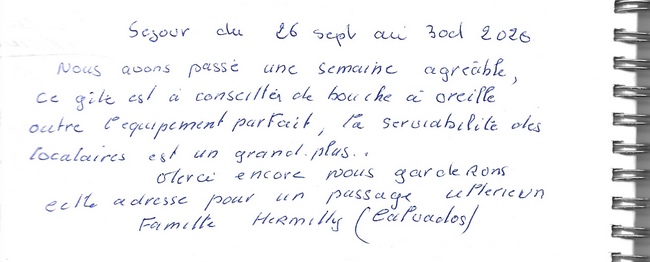 Sejour du 26 sept au 3 oct 2020
Nous avons passé une semaine agréable,
ce gîte est à conseiller de bouche à oreille
outre l'equipement parfait, la serviabilité des
localaires est un grand plus..
Merci encore nous garderons
cette adresse pour un passage ulterieur
Famille Hermilly (Calvados)